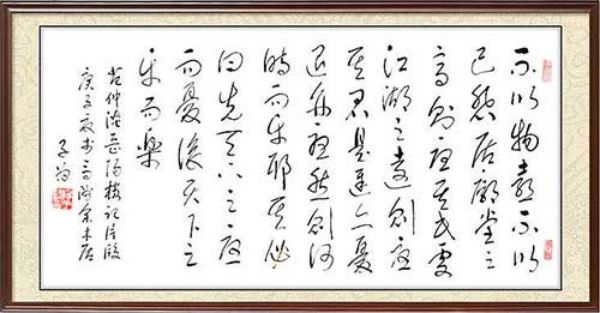 不以物喜不以
己悲居廟堂之
高則憂其民處
江湖之遠則憂
其君是進亦憂
退亦憂然則何
時而乐耶其必
曰先天下之憂
而憂後天下之
乐而樂
范仲淹岳陽樓記
庚子